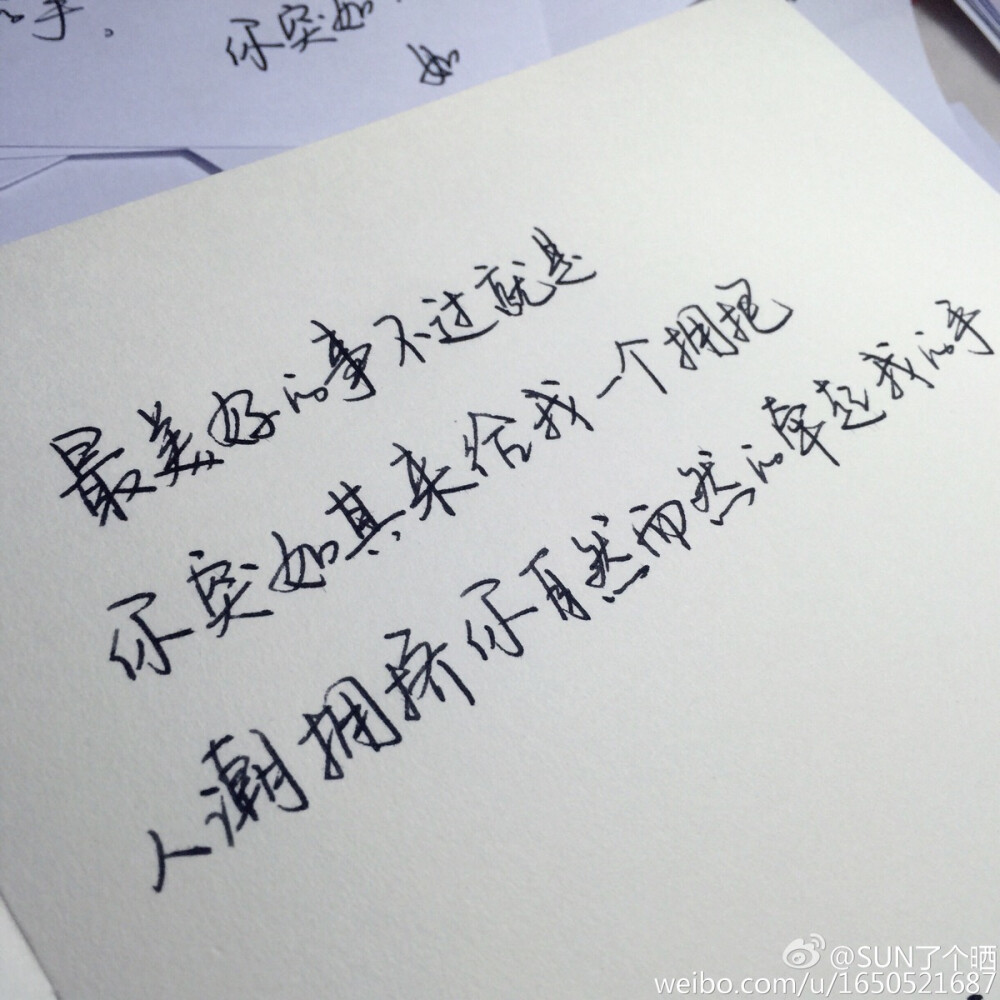 的手。
你突如
如
最美好的事不过就是
你突如其来给我一个拥抱
人潮拥挤你自然而然的牵起我的手
@SUN了个晒
weibo.com/u/1650521687